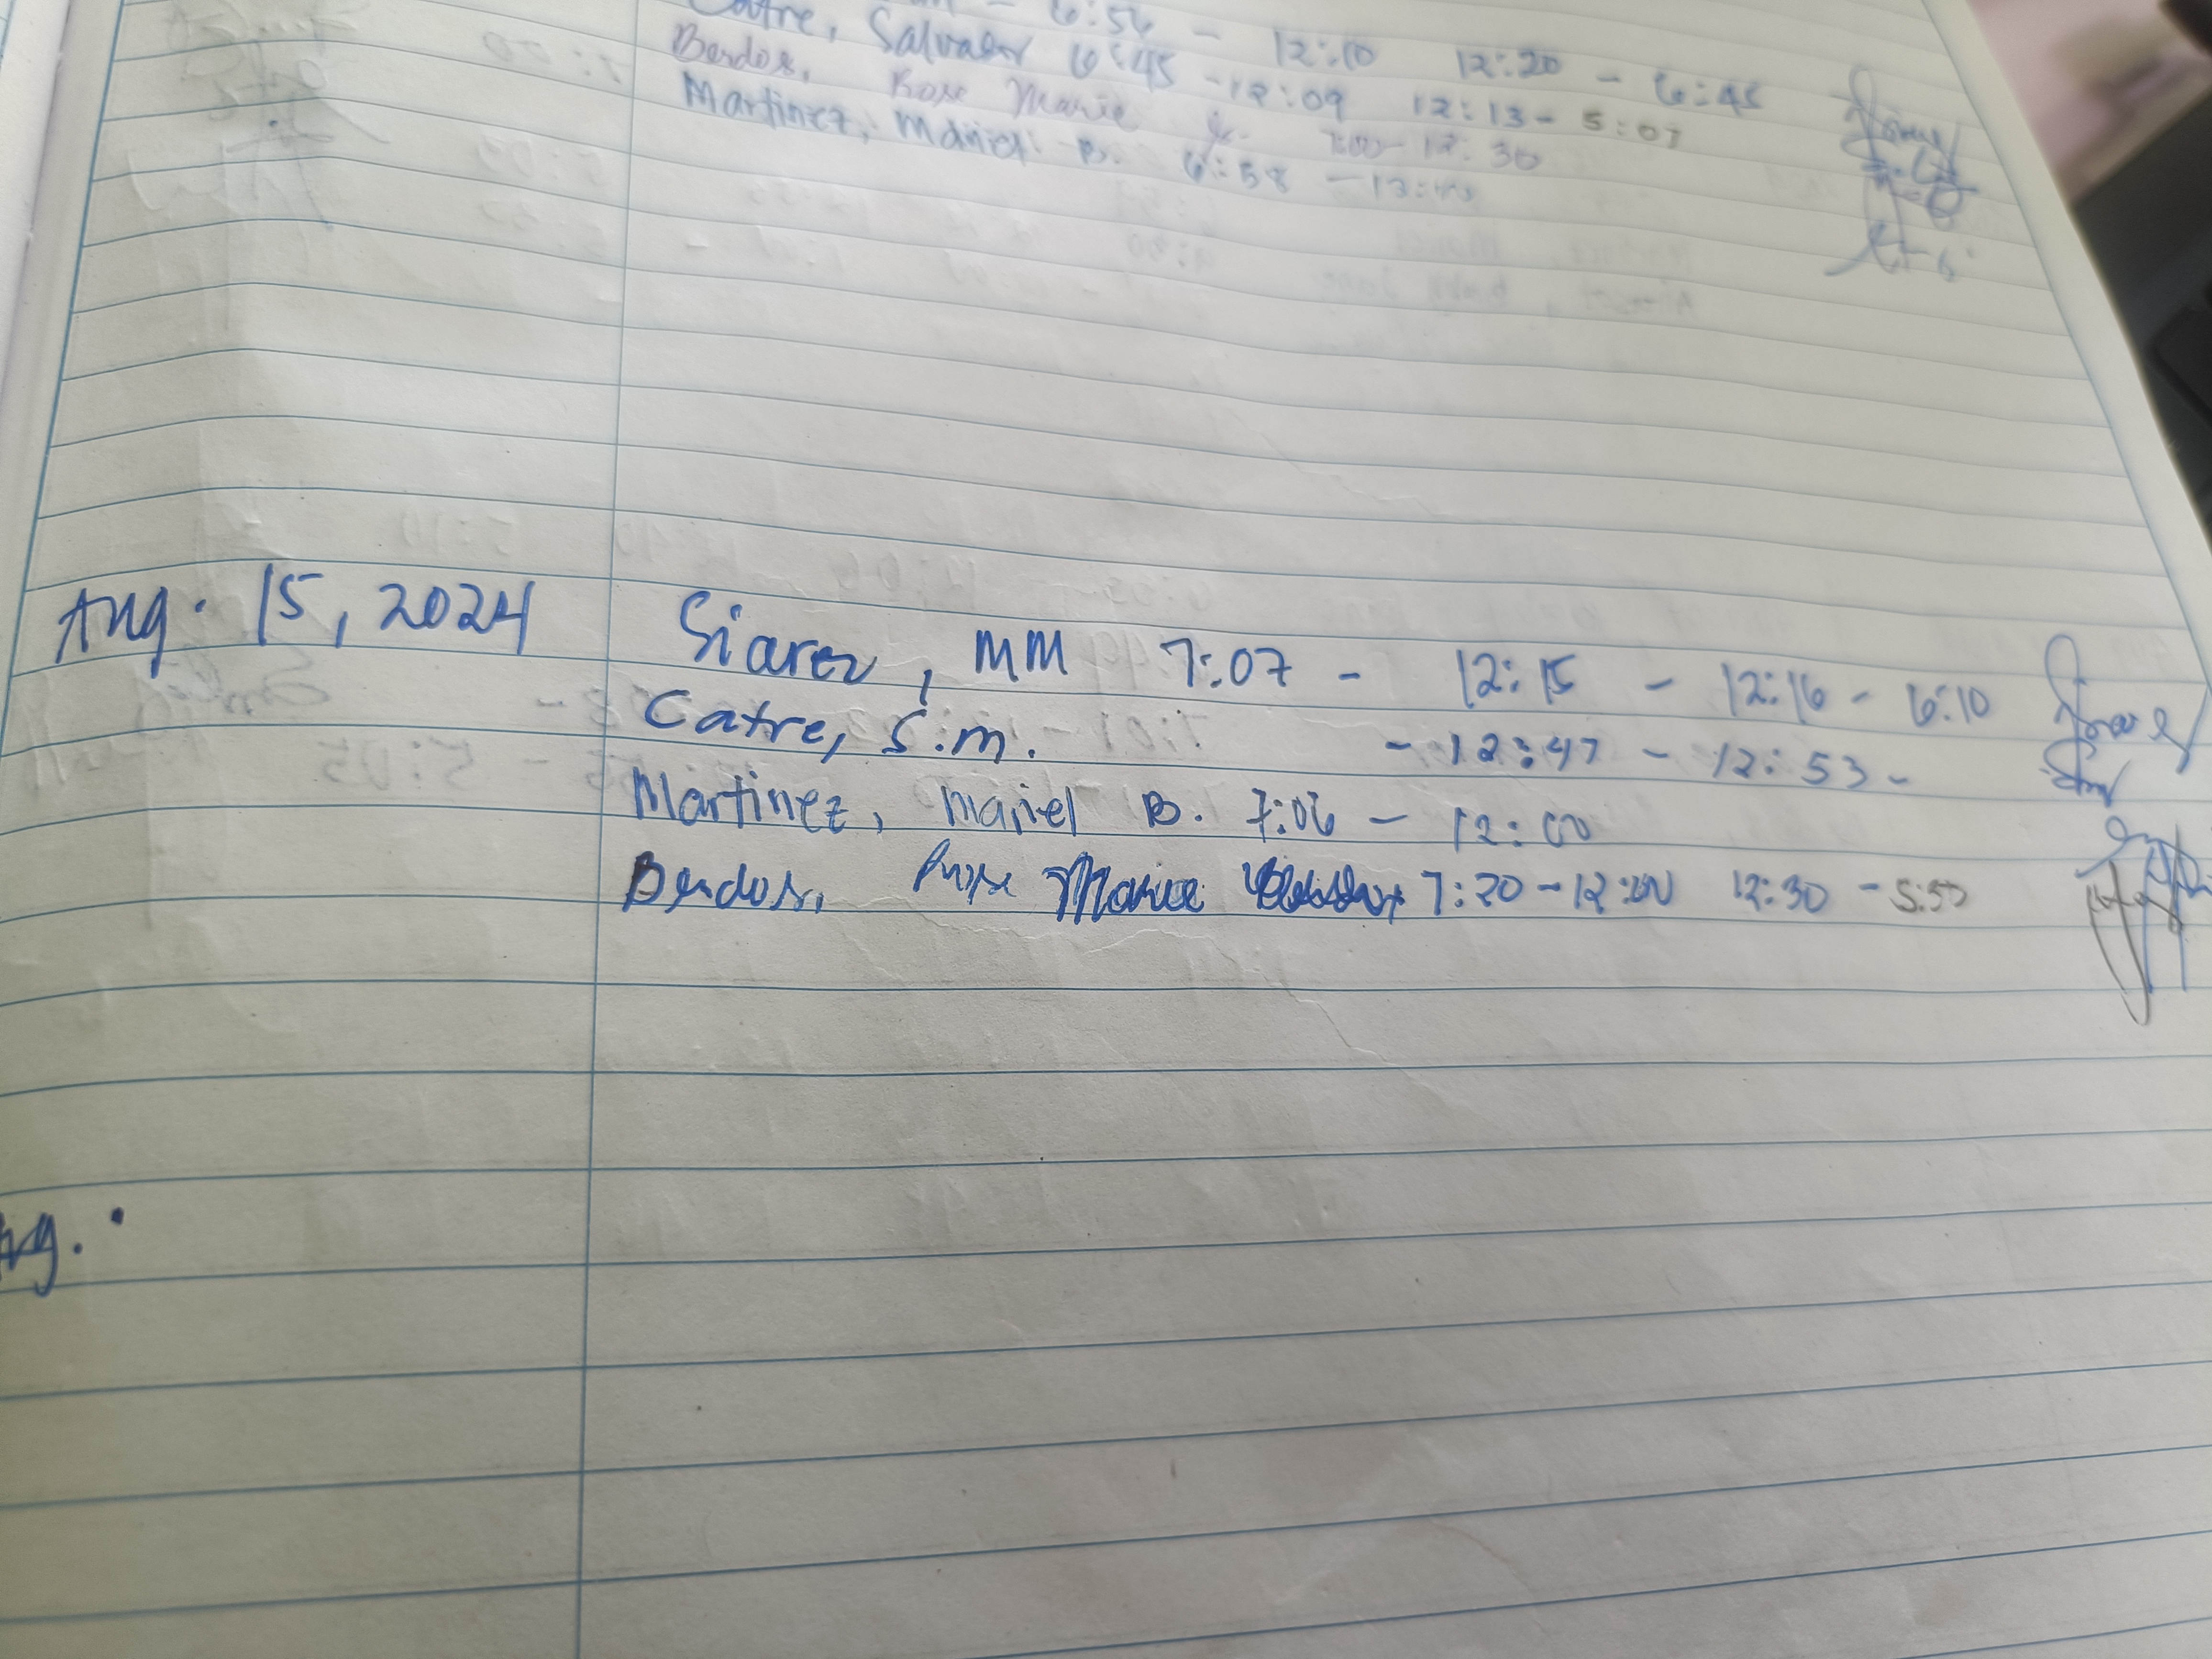 6:56 - 12:10 12:20 - 6:45
Catre, Salvador 6:45 - 12:09 12:13 - 5:07
Bendos, Rose Marie 7:00 - 12:30
Martinez, Mariel B. 6:58 - 
Aug. 15, 2024 Siarez, MM 7:07 - 12:15 - 12:16 - 6:10
Catre, S.m. - 12:47 - 12:53 -
Martinez, Mariel B. 7:06 - 12:00
Bendos, Rose Marie 7:20 - 12:00 12:30 - 5:50
Aug.